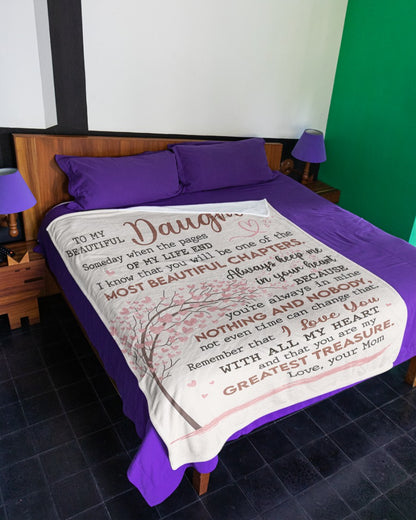 TO MY
BEAUTIFUL
Someday when the pages
OF MY LIFE END
I know that you will be one of the
MOST BEAUTIFUL CHAPTERS.
Always keep me
in your heart,
BECAUSE
you're always in mine
NOTHING AND NOBODY
not even time can change that
Remember that I Love You
WITH ALL MY HEART
and that you are my
GREATEST TREASURE.
Love, your Mom